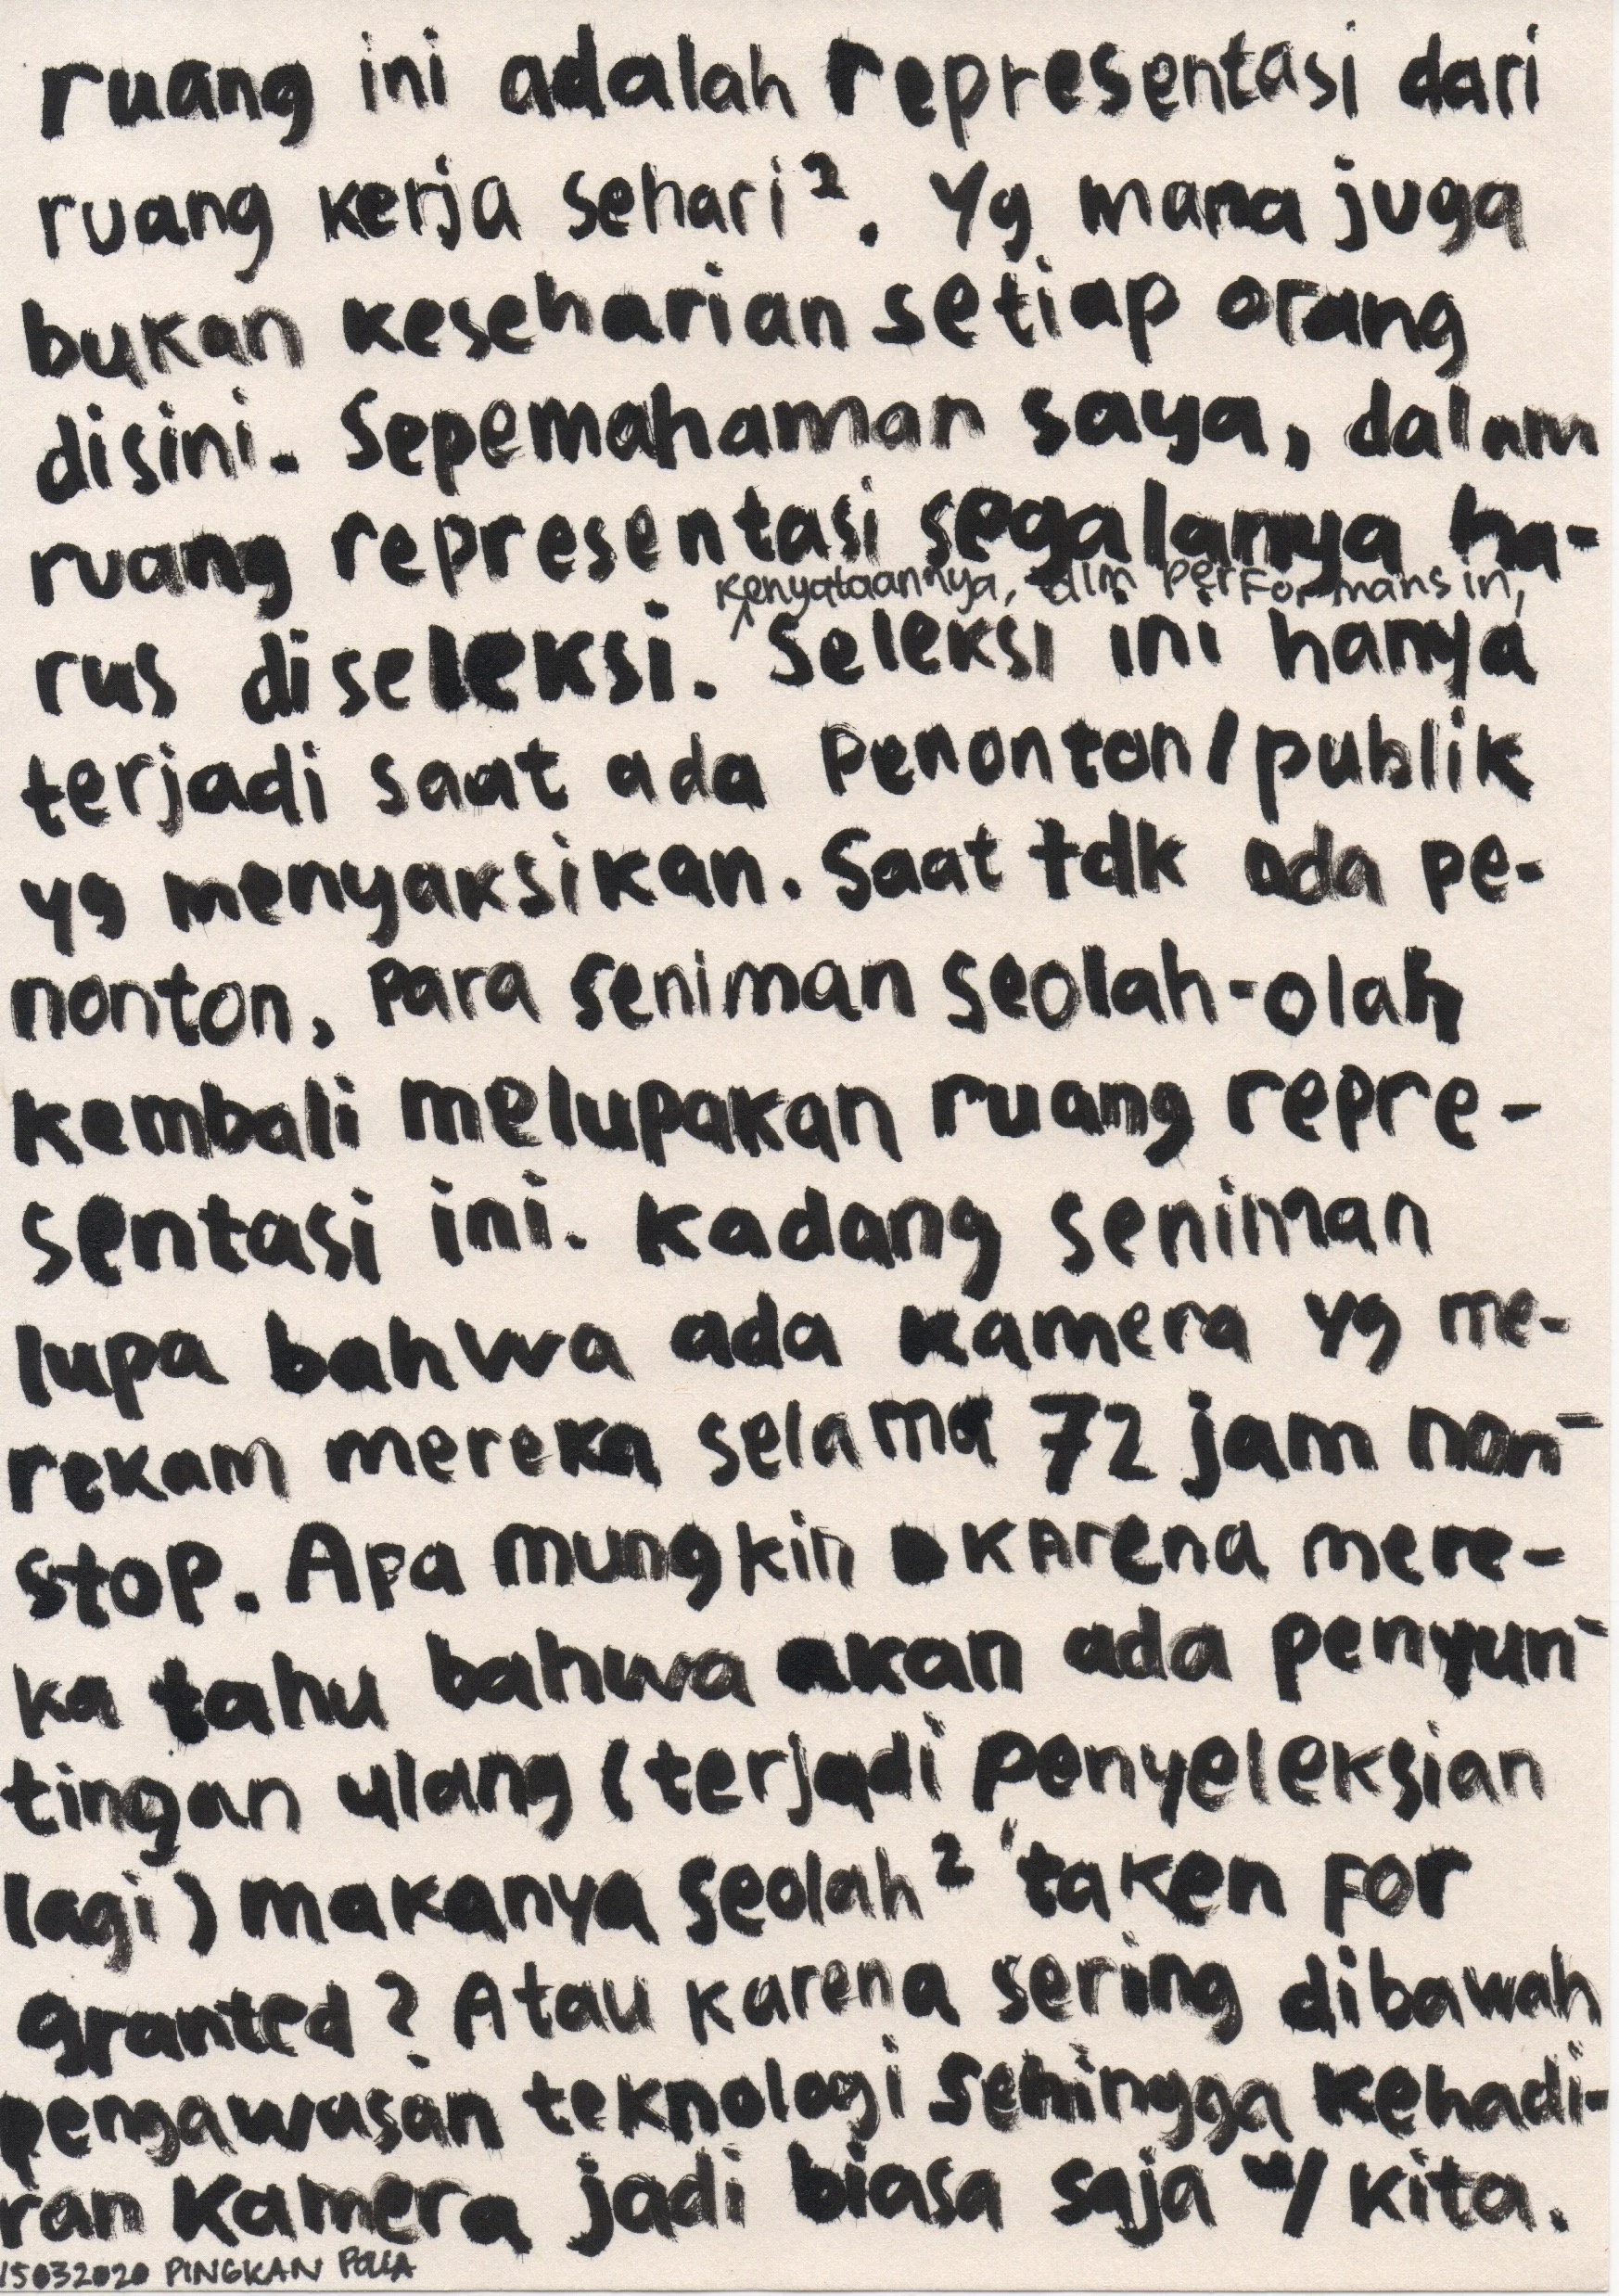 ruang ini adalah representasi dari
ruang kerja sehari². Yg mana juga
bukan keseharian setiap orang
disini. Sepemahaman saya, dalam
ruang representasi segalanya ha-
kenyataannya, dlm performans ini,
rus diseleksi. ^ Seleksi ini hanya
terjadi saat ada penonton/publik
yg menyaksikan. Saat tdk ada pe-
nonton, para seniman seolah-olah
kembali melupakan ruang repre-
sentasi ini. kadang seniman
lupa bahwa ada kamera yg me-
rekam mereka selama 72 jam non-
stop. Apa mungkin karena mere-
ka tahu bahwa akan ada penyun-
tingan ulang (terjadi penyeleksian
lagi) makanya seolah² 'taken for
granted? Atau karena sering dibawah
pengawasan teknologi sehingga kehadi-
ran kamera jadi biasa saja u/ kita.
15032020 PINGKAN POLLA